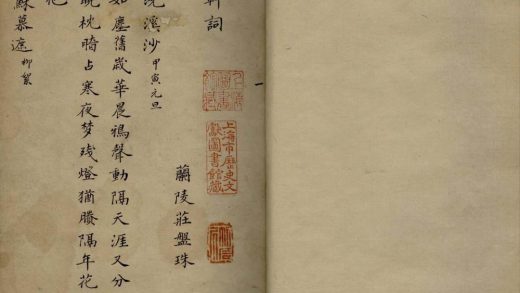 上海市歷史文
獻圖書館藏
軒詞
蘭陵莊盤珠
浣溪沙 甲寅元旦
如塵舊歲華晨鴉聲動隔天涯又分
曉枕晴占寒夜梦殘燈猶賸隔年花
蘇慕遮 柳絮